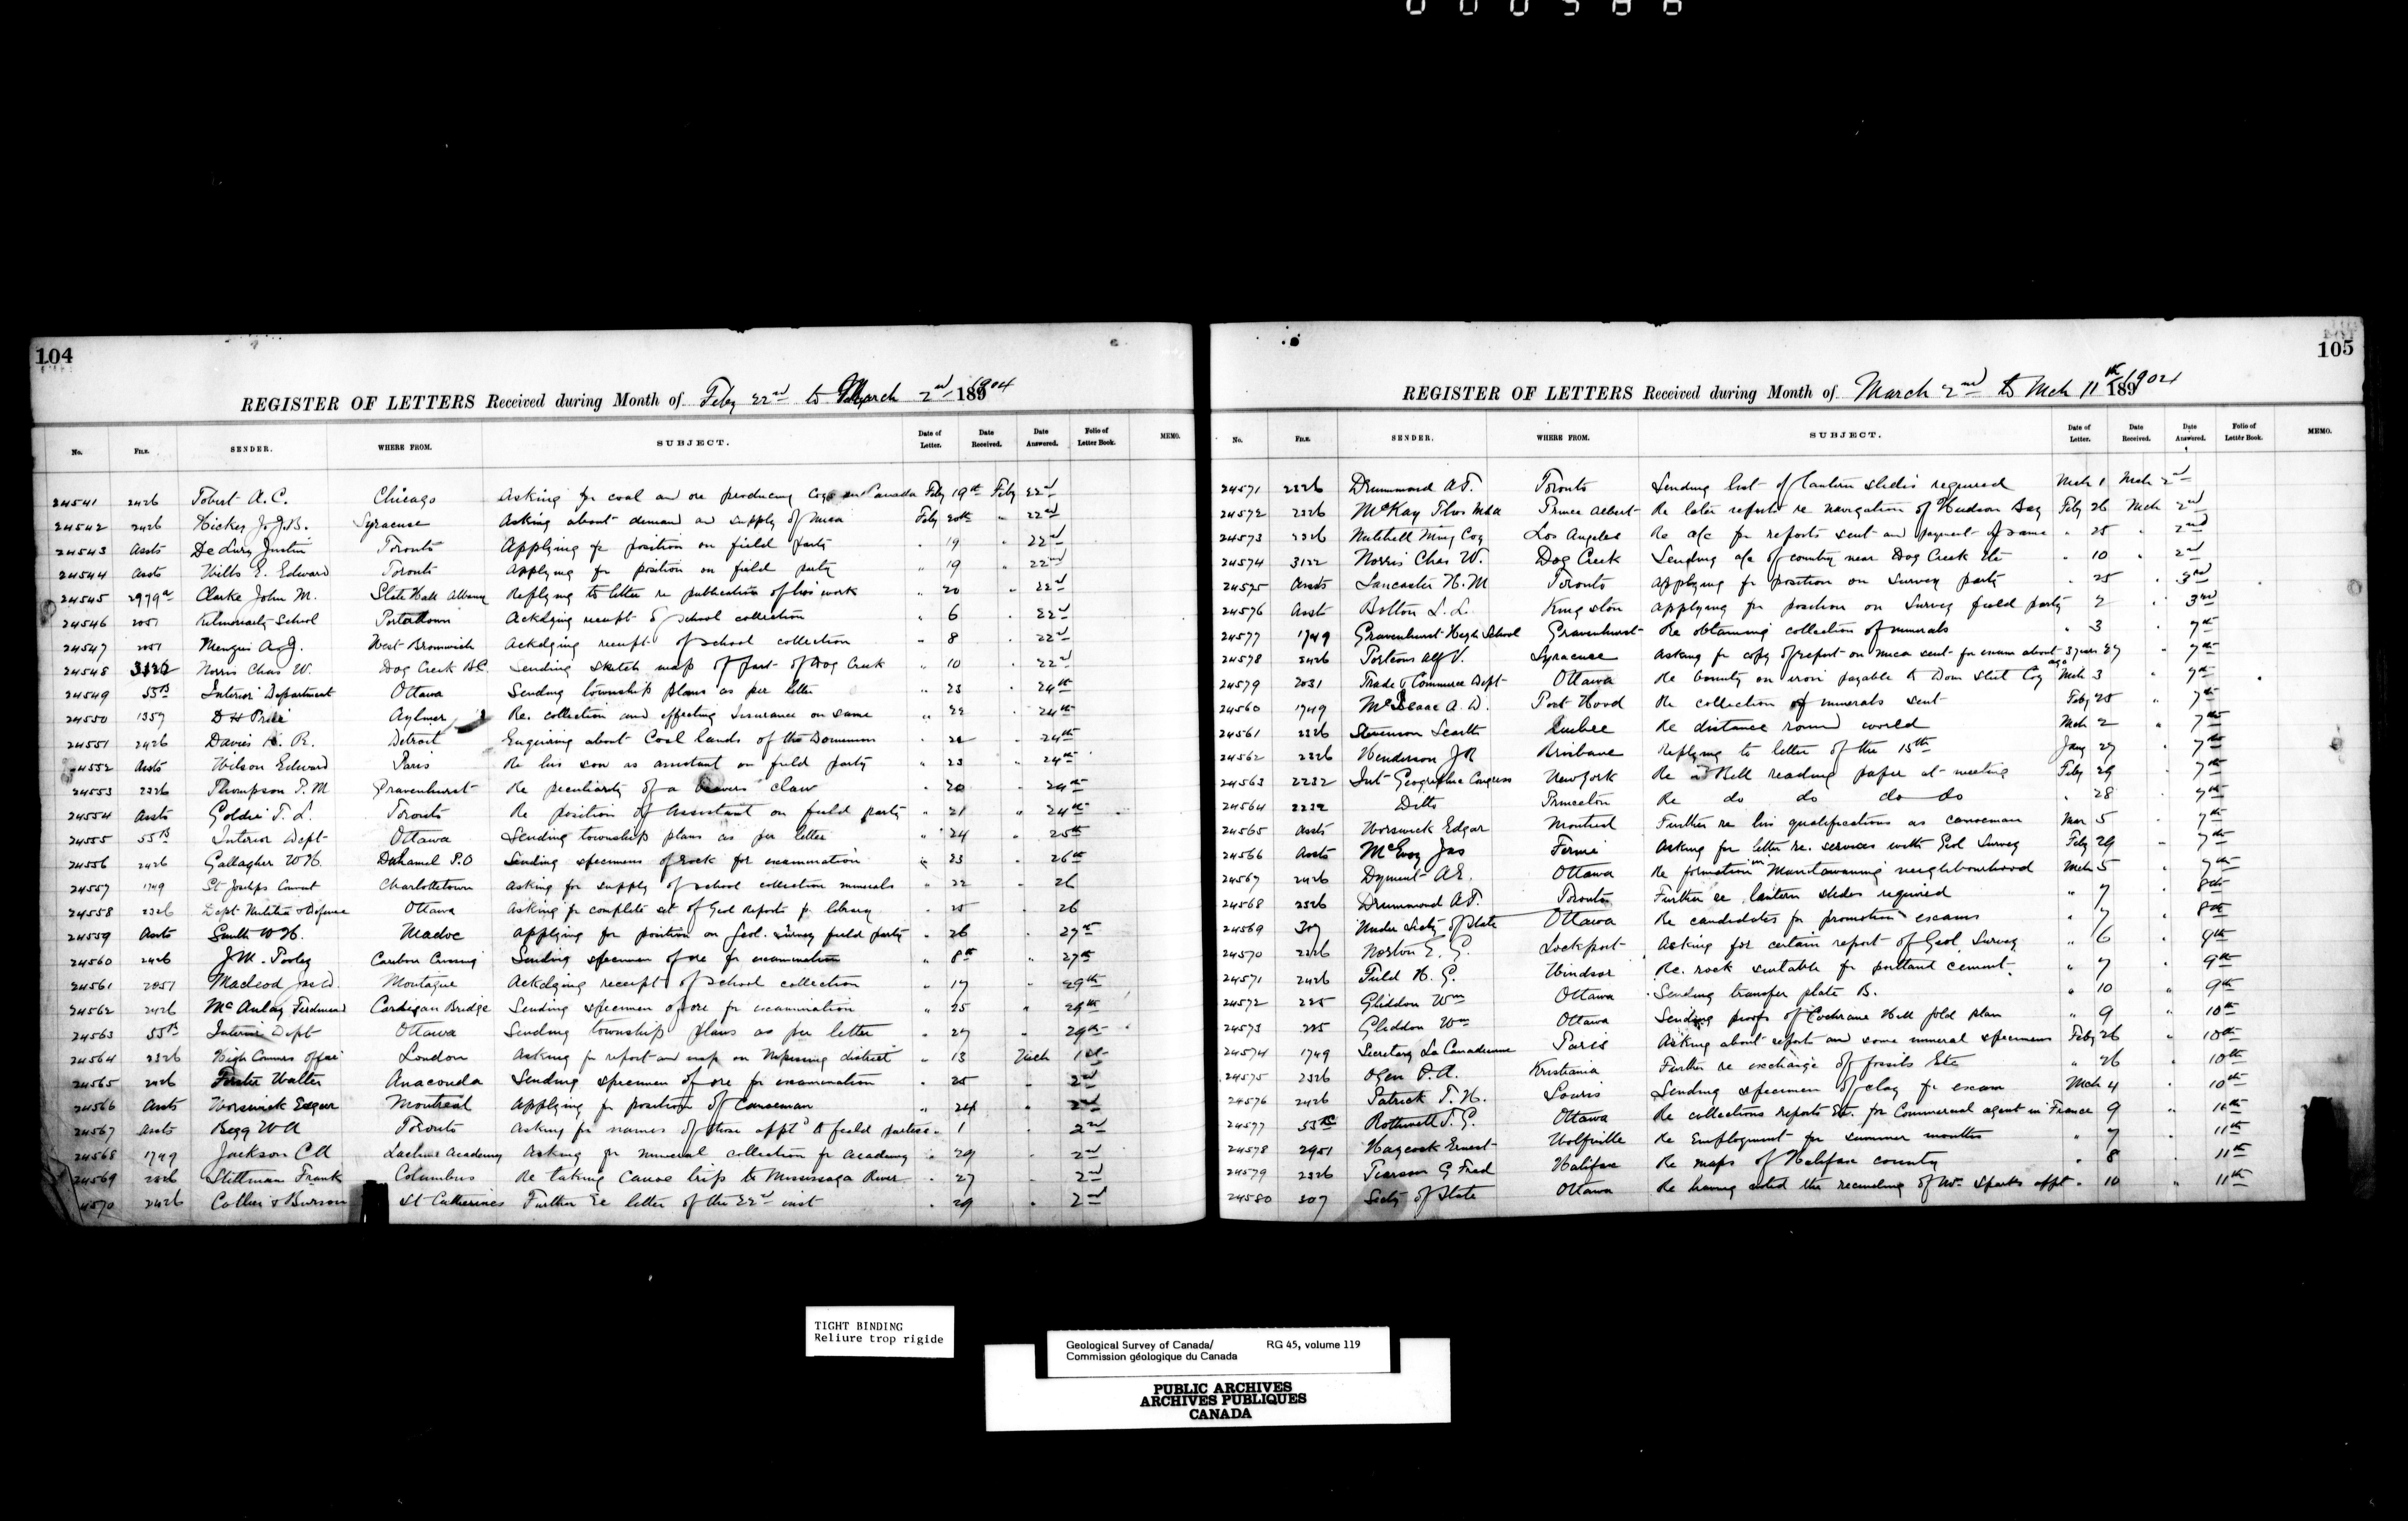 000588
104
REGISTER OF LETTERS Received during Month of Feby 22nd to March 2nd 1904
No. FILE. SENDER. WHERE FROM. SUBJECT. Date of Letter. Date Received. Date Answered. Folio of Letter Book. MEMO.
24541 2426 Tobert A.C. Chicago Asking for coal and ore producing Coys in Canada Feby 19th Feby 22nd
24542 2426 Hickey J.J.B. Syracuse Asking about demand and supply of Mica Feby 20th " 22nd
24543 Assts De Lury Justin Toronto Applying for position on field party " 19 " 22nd
24544 Assts Wills E. Edward Toronto Applying for position on field party " 19 " 22nd
24545 2979a Clarke John M. State Hall Albany Replying to letter re publication of his work " 20 " 22nd
24546 2051 School Portadown Ackdging receipt of school collection " 6 " 22nd
24547 2051 A.J. West Bromwich Ackdging receipt of school collection " 8 " 22nd
24548 3122 Norris Chas W. Dog Creek B.C. Sending sketch map of part of Dog Creek " 10 " 22nd
24549 55B Interior Department Ottawa Sending township plans as per letter " 23 " 24th
24550 1357 D H Price Aylmer Re. collection and effecting Insurance on same " 22 " 24th
24551 2426 Davis R. Detroit Enquiring about Coal lands of the Dominion " 24th
24552 Assts Wilson Edward Paris Re his son as assistant on field party " 23 " 24th
24553 2326 Thompson P. M Gravenhurst Re peculiarity of a Beavers claw " 20 " 24th
24554 Assts Goldie T. L. Toronto Re position of Assistant on field party " 21 " 24th
24555 55B Interior Dept Ottawa Sending township plans as per letter " 24 " 25th
24556 2426 Gallagher W H. Duhamel P.O Sending specimens of rock for examination " 23 " 26th
24557 1749 St Josephs Convent Charlottetown Asking for supply of school collection minerals " 22 " 26
24558 2326 Dept Militia & Defence Ottawa Asking for complete set of Geol Reports for library " 25 " 26
24559 Assts Smith W H. Madoc Applying for position on Geol. Survey field party " 26 " 27th
24560 2426 J.M. Pooley Caribou Crossing Sending specimen of ore for examination " 8th " 27th
24561 2051 Macleod Jas D. Montague Ackdging receipt of school collection " 17 " 29th
24562 2426 McAulay Ferdinand Cardigan Bridge Sending specimen of ore for examination " 25 " 29th
24563 55B Interior Dept Ottawa Sending township plans as per letter " 27 " 29th
24564 2326 High Commrs Office London Asking for report and map on Nipissing district " 13 Mch 1st
24565 2426 Foster Walter Anaconda Sending specimen of ore for examination " 25 " 2nd
24566 Assts Worswick Edgar Montreal Applying for position of Canoeman " 24 " 2nd
24567 Assts Begg W A Toronto Asking for names of those apptd to field parties " 1 " 2nd
24568 1749 Jackson C A Lachute Academy Asking for mineral collection for academy " 29 " 2nd
24569 2326 Stillman Frank Columbus Re taking Canoe trip to Mississaga River " 27 " 2nd
24570 2426 Collier & Burson St Catherines Further re letter of the 22nd inst " 29 " 2nd
105
REGISTER OF LETTERS Received during Month of March 2nd to Mch 11th 1904
No. FILE. SENDER. WHERE FROM. SUBJECT. Date of Letter. Date Received. Date Answered. Folio of Letter Book. MEMO.
24571 2326 Drummond A.T. Toronto Sending list of lantern slides required Mch 1 Mch 2nd
24572 2326 McKay Thos MLA Prince Albert Re later reports re navigation of Hudson Bay Feby 26 Mch 2nd
24573 2326 Mitchell Ming Coy Los Angeles Re a/c for reports sent and payment of same " 25 " 2nd
24574 3122 Norris Chas W. Dog Creek Sending a/c of country near Dog Creek etc " 10 " 2nd
24575 Assts Lancaster H. M Toronto Applying for position on Survey party " 25 " 3rd
24576 Asst Bolton L. L. Kingston Applying for position on Survey field party " 2 " 3rd
24577 1749 Gravenhurst High School Gravenhurst Re obtaining collection of minerals " 3 " 7th
24578 2426 Porteous Alf V. Syracuse Asking for copy of report on mica sent for exam about 3 years ago 27 " 7th
24579 2031 Trade & Commerce Dept Ottawa Re bounty on iron payable to Dom Steel Coy Mch 3 " 7th
24560 1749 McIsaac A. D. Port Hood Re collection of minerals sent Feby 25 " 7th
24561 2326 Stevenson Scarth Quebec Re distance round world Mch 2 " 7th
24562 2326 Henderson J R Brisbane Replying to letter of the 15th Jany 27 " 7th
24563 2232 Int Geographic Congress New York Re Dr Bell reading paper at meeting Feby 29 " 7th
24564 2232 Ditto Princeton Re do do do do " 28 " 7th
24565 Assts Worswick Edgar Montreal Further re his qualifications as canoeman Mar 5 " 7th
24566 Assts McEvoy Jas Fernie Asking for letter re. services with Geol Survey Feby 29 " 7th
24567 2426 Dyment A.E. Ottawa Re formation in Manitowaning neighbourhood Mch 5 " 7th
24568 2326 Drummond A.T. Toronto Further re lantern slides required " 7 " 8th
24569 307 Under Secty of State Ottawa Re candidates for promotion exams " 7 " 8th
24570 2326 Norton E. G. Lockport Asking for certain report of Geol Survey " 6 " 9th
24571 2426 Field H. G. Windsor Re. rock suitable for portland cement. " 7 " 9th
24572 225 Gliddon Wm Ottawa Sending transfer plate B. " 10 " 9th
24573 225 Gliddon Wm Ottawa Sending proofs of Cochrane Hill gold plan " 9 " 10th
24574 1749 Secretary La Canadienne Paris Asking about reports and some mineral specimens Feby 26 " 10th
24575 2326 Oyen P.A. Kristiania Further re exchange of fossils Etc " 26 " 10th
24576 2426 Patrick T. H. Souris Sending specimen of clay for exam Mch 4 " 10th
24577 Rothwell T. G. Ottawa Re collections reports Etc. for Commercial agent in France 9 " 10th
24578 2951 Haycock Ernest Wolfville Re Employment for summer months " 7 " 11th
24579 2326 Pearson G Fred Halifax Re maps of Halifax county " 8 " 11th
24580 307 Secty of State Ottawa Re having the of Wm Sparks appt " 10 " 11th
TIGHT BINDING
Reliure trop rigide
Geological Survey of Canada/ RG 45, volume 119
Commission géologique du Canada
PUBLIC ARCHIVES
ARCHIVES PUBLIQUES
CANADA